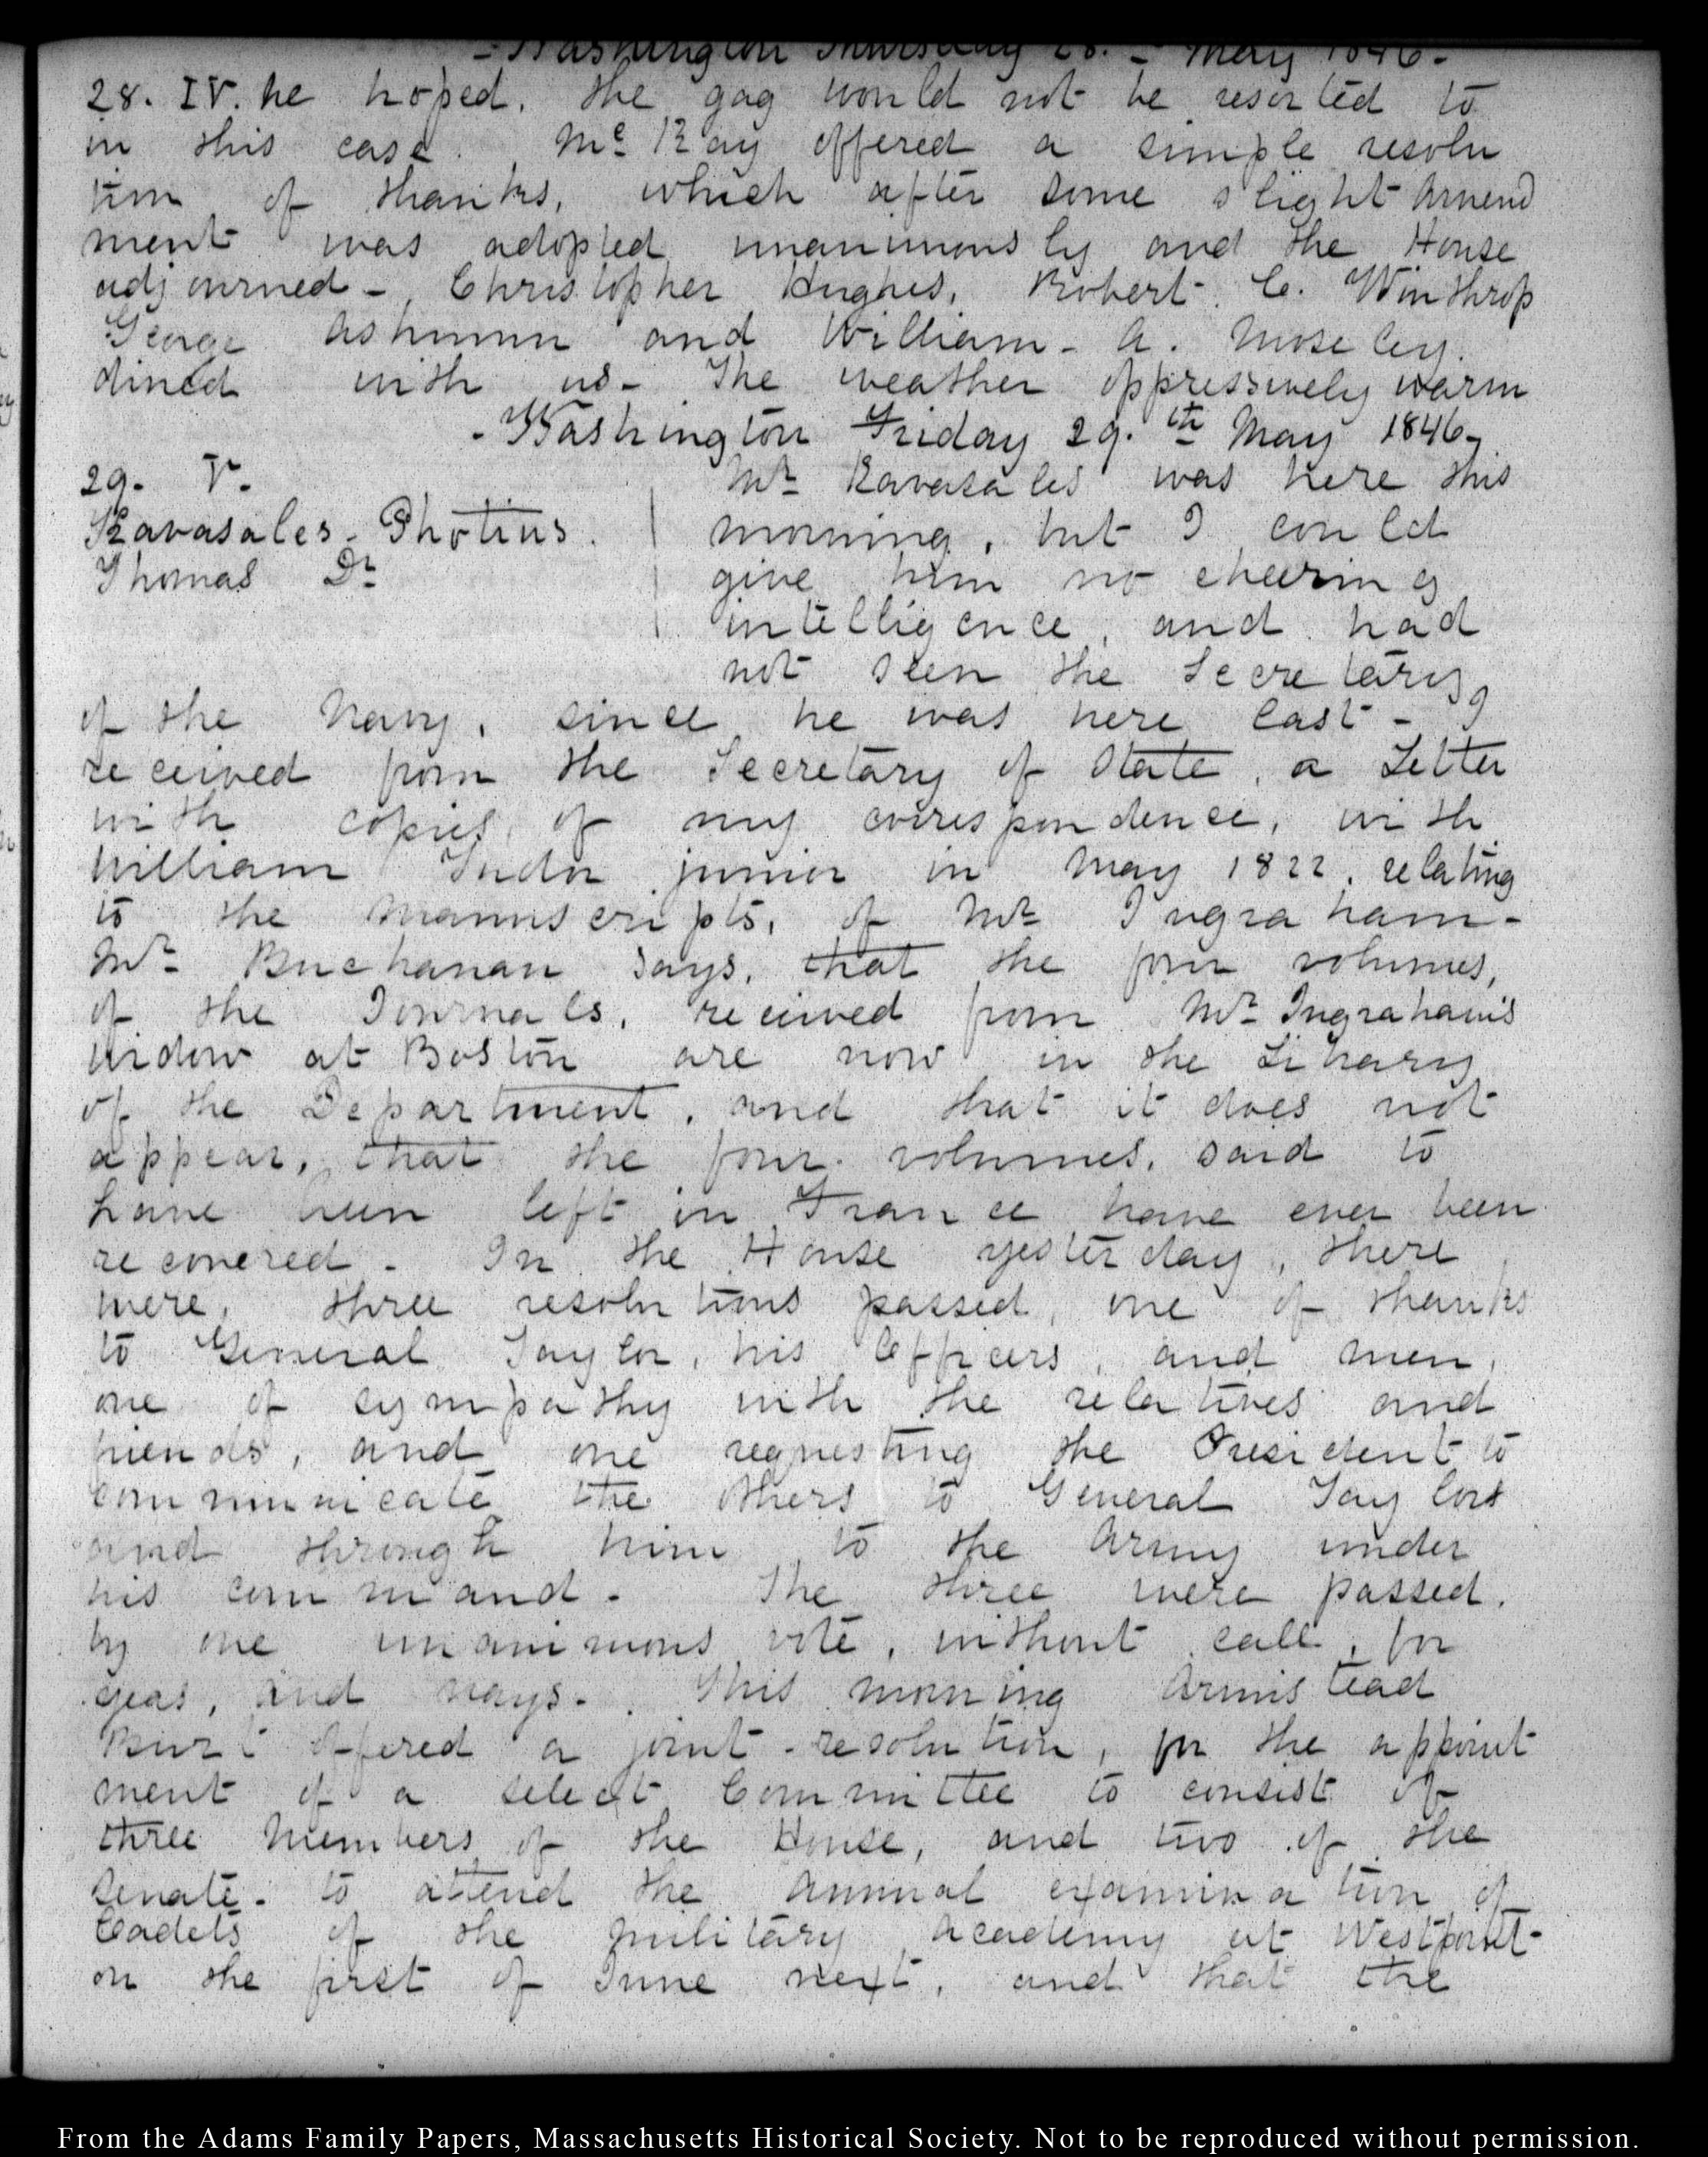 - Washington Thursday 28. - May 1846 -
28. IV. he hoped, the gag would not be resorted to
in this case. Mc Kay offered a simple resolu
tion of thanks, which after some slight Amend
ment was adopted unanimously and the House
adjourned -, Christopher Hughes, Robert C. Winthrop
George Ashmun and William - A. Moseley.
dined with us - The weather oppressively warm
- Washington Friday 29.th May 1846 -
29. V.
Kavasales - Photius.
Thomas Dr
Mr Kavasales was here this
morning, but I could
give him no cheering
intelligence, and had
not seen the Secretary
of the Navy, since he was here last - I
received from the Secretary of State, a Letter
with copies, of my correspondence, with
William Tudor junior in May 1822, relating
to the Manuscripts, of Mr Ingraham -
Mr Buchanan says, that the four volumes,
of the Journals, received from Mr Ingraham's
widow at Boston are now in the Library
of the Department, and that it does not
appear, that the four volumes, said to
have been left in France have ever been
recovered - In the House yesterday, there
were, three resolutions passed, one of thanks
to General Taylor, his Officers, and men,
one of sympathy with the relatives and
friends, and one requesting the President to
communicate the others to General Taylor
and through him to the Army under
his command - The three were passed,
by one unanimous vote, without call, for
yeas, and nays - This morning Armistead
Burt offered a joint - resolution, for the appoint
ment of a select Committee to consist of
three Members of the House, and two of the
Senate - to attend the Annual examination of
Cadets of the Military Academy at Westpoint -
on the first of June next, and that the
From the Adams Family Papers, Massachusetts Historical Society. Not to be reproduced without permission.